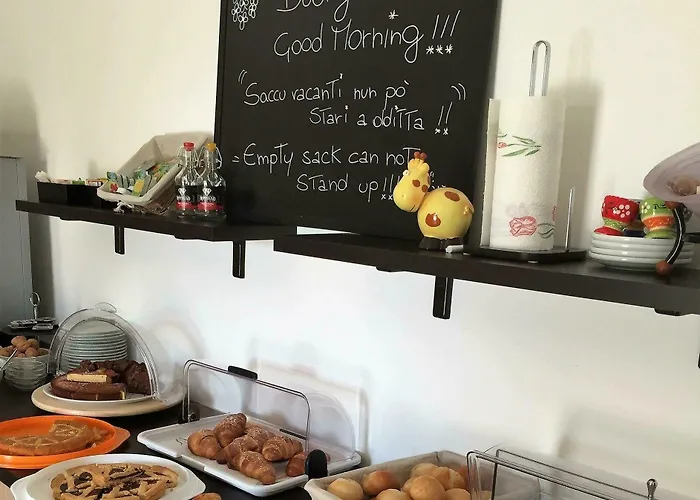 Good Morning!!!
"Saccu vacanti nun pò
stari a dditta!!"
= Empty sack can not
stand up!!!